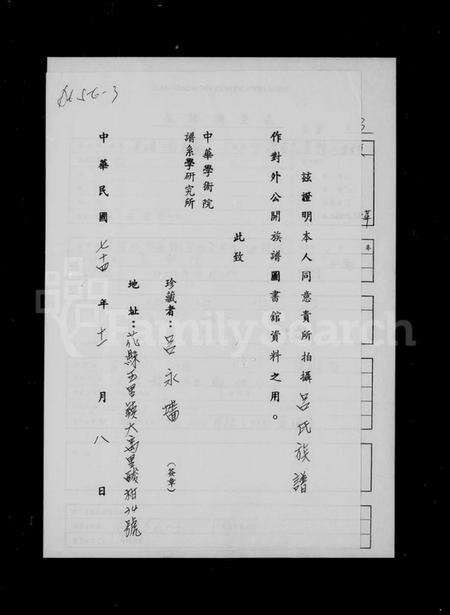 茲證明本人同意貴所拍攝呂氏族譜
作對外公開族譜圖書館資料之用。
此致
中華學術院
譜系學研究所
珍藏者：呂永(簽章)
地址：縣里大里34號
中華民國七十四年十一月八日
FamilySearch